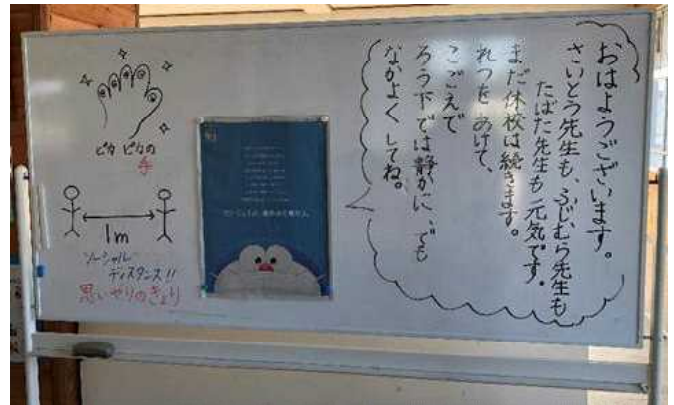 おはようございます。
さいとう先生も、ふじむら先生も
たばた先生も元気です。
まだ休校は続きます。
れつを あけて、
こごえで
ろう下では静かに、でも
なかよくしてね。
ピカ ピカの
手
1m
ソーシャル
ディスタンス!!
思いやりのきょり